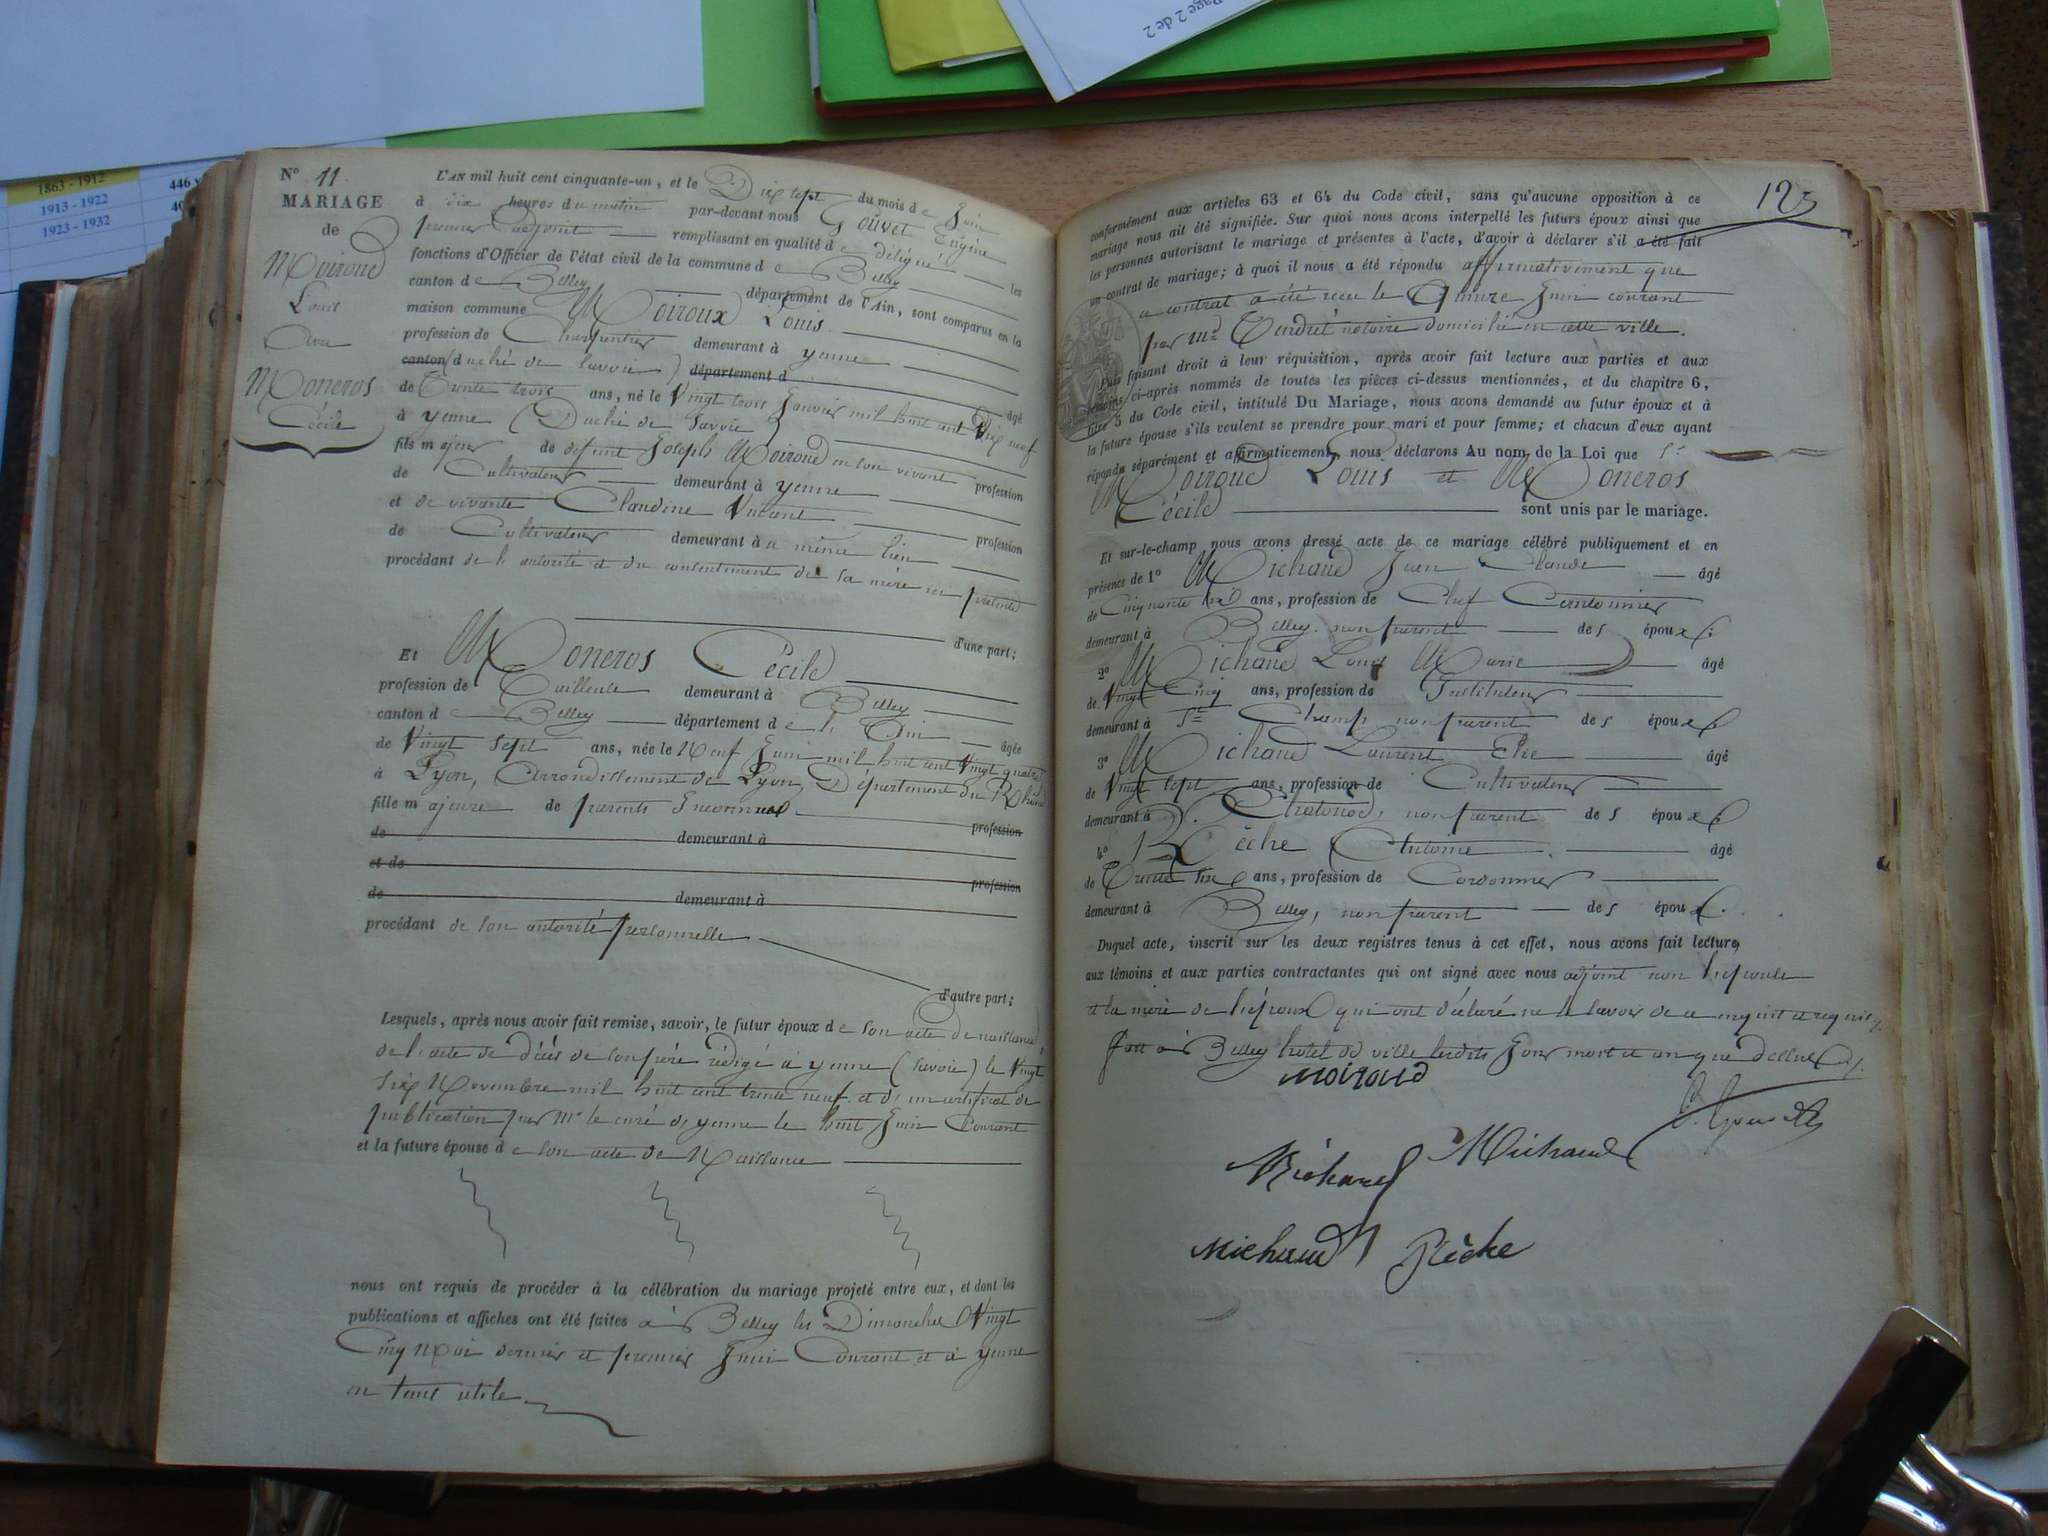 Page 2 de 2
1863 - 1912
446 v
1913 - 1922
40
1923 - 1932
N° 11.
MARIAGE
de
Moiroud
Louis
Avec
Moneros
Cécile
L'AN mil huit cent cinquante-un, et le Dix sept du mois de Juin
à dix heures du matin par-devant nous Gouvet Eugène
premier adjoint remplissant en qualité de délégué les
fonctions d'Officier de l'état civil de la commune de Belley
canton de Belley département de l'Ain, sont comparus en la
maison commune Moiroux Louis.
profession de Charpentier demeurant à yenne
canton (duché de Savoie) département d
âgé
de Trente trois ans, né le Vingt trois Janvier mil huit cent Dix neuf
à yenne (Duché de Savoie)
fils majeur de défunt Joseph Moiroud en son vivant profession
de Cultivateur demeurant à yenne
et de vivante Claudine Vincent profession
de Cultivateur demeurant au même lieu
procédant de l'autorité et du consentement de sa mère ici présente
d'une part;
Et Moneros Cécile
profession de Tailleuse demeurant à Belley
canton de Belley département de l'Ain âgée
de Vingt sept ans, née le Neuf Juin mil huit cent Vingt quatre
à Lyon, Arrondissement de Lyon, Département du Rhône
fille majeure de parents Inconnus profession
de demeurant à
et de profession
de demeurant à
procédant de son autorité personnelle
d'autre part;
Lesquels, après nous avoir fait remise, savoir, le futur époux de son acte de naissance,
de l'acte de décès de son père rédigé à yenne (Savoie) le Vingt
six Novembre mil huit cent trente neuf et d'un certificat de
publication par Mr le curé d'yenne le huit Juin Courant
et la future épouse de son acte de Naissance
nous ont requis de procéder à la célébration du mariage projeté entre eux, et dont les
publications et affiches ont été faites à Belley les Dimanches Vingt
Cinq Mai dernier et premier Juin Courant et à yenne
en tems utile
123
conformément aux articles 63 et 64 du Code civil, sans qu'aucune opposition à ce
mariage nous ait été signifiée. Sur quoi nous avons interpellé les futurs époux ainsi que
les personnes autorisant le mariage et présentes à l'acte, d'avoir à déclarer s'il a été fait
un contrat de mariage; à quoi il nous a été répondu affirmativement que
ce contrat a été reçu le Quinze Juin courant
par Me Tendret notaire domicilié en cette ville.
Puis faisant droit à leur réquisition, après avoir fait lecture aux parties et aux
témoins ci-après nommés de toutes les pièces ci-dessus mentionnées, et du chapitre 6,
titre 5 du Code civil, intitulé Du Mariage, nous avons demandé au futur époux et à
la future épouse s'ils veulent se prendre pour mari et pour femme; et chacun d'eux ayant
répondu séparément et affirmativement, nous déclarons Au nom de la Loi que Sr
Moiroud Louis et Moneros
Cécile sont unis par le mariage.
Et sur-le-champ nous avons dressé acte de ce mariage célébré publiquement et en
présence de 1° Michaud Jean Claude âgé
de Cinquante six ans, profession de Chef Cantonnier
demeurant à Belley, non parent des époux;
2° Michaud Louis Marie âgé
de Vingt Cinq ans, profession de Instituteur
demeurant à St Champ non parent des époux
3° Michaud Laurent Elie âgé
de Vingt sept ans, profession de Cultivateur
demeurant à Chatonod, non parent des époux
4° Rèche Antoine âgé
de Trente six ans, profession de Cordonnier
demeurant à Belley, non parent des époux.
Duquel acte, inscrit sur les deux registres tenus à cet effet, nous avons fait lecture
aux témoins et aux parties contractantes qui ont signé avec nous adjoint non l'épouse
et la mère de l'époux qui ont déclaré ne le savoir de ce enquis et requis
fait à Belley hôtel de ville lesdits Jour mois et an que dessus
Moiroud
Michaud Michaud
Michaud Rèche